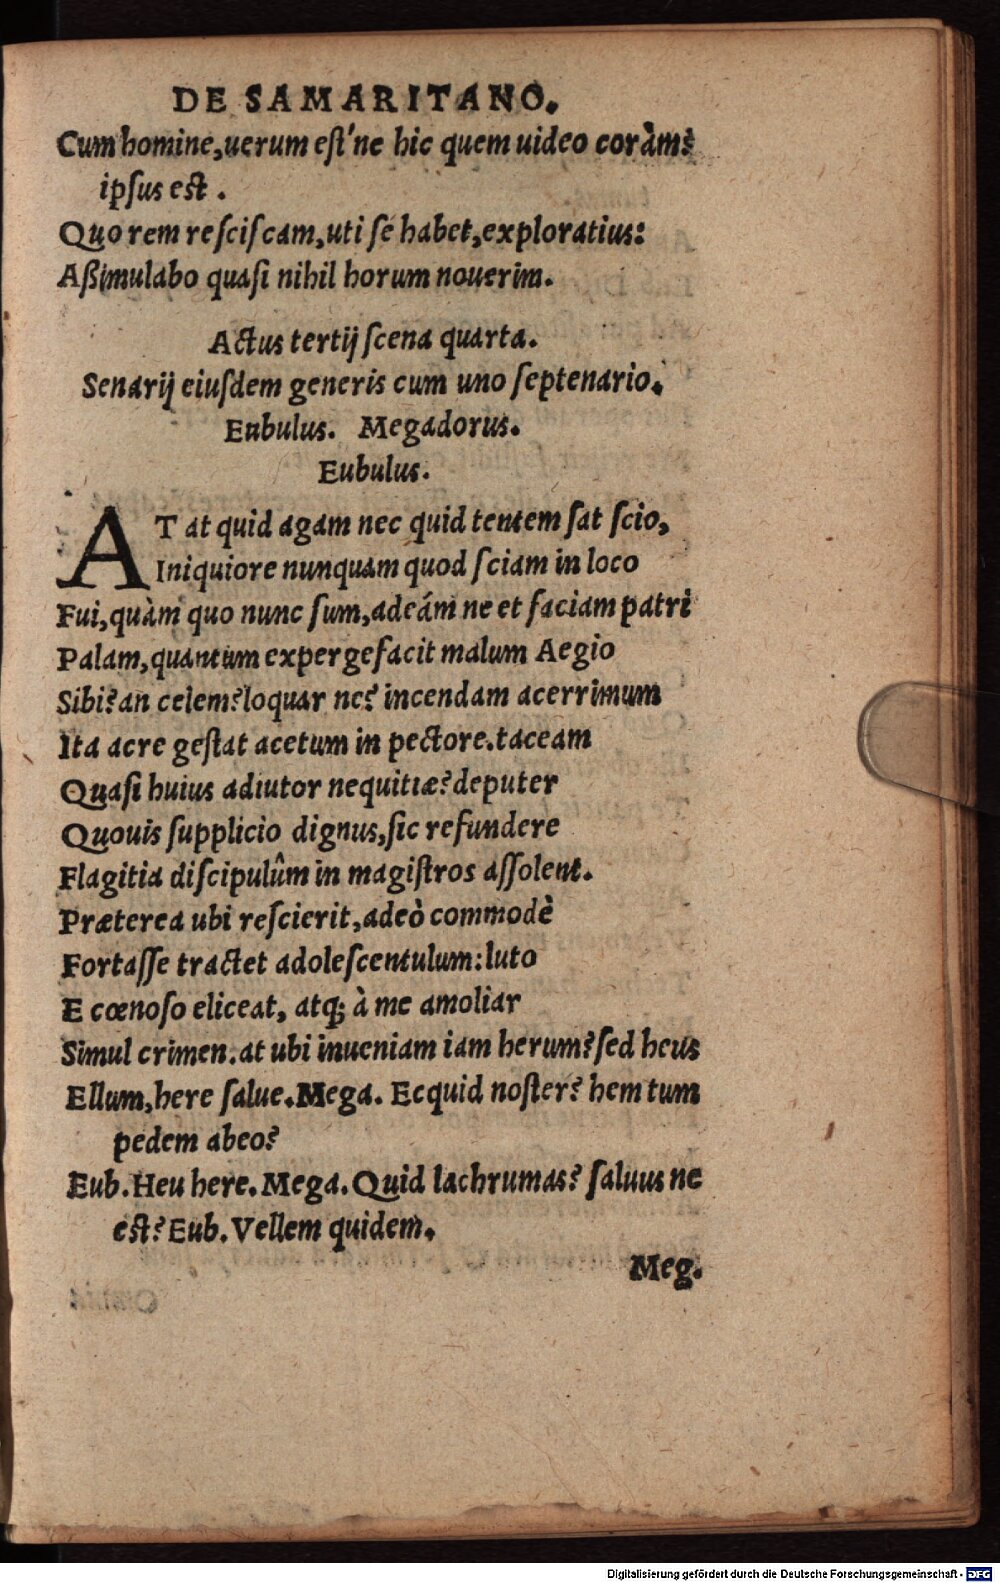 DE SAMARITANO.
Cum homine,uerum est'ne hic quem uideo coràm?
ipsus est .
Quo rem resciscam,uti se habet,exploratius:
Aßimulabo quasi nihil horum nouerim.
Actus tertij scena quarta.
Senarij eiusdem generis cum uno septenario.
Eubulus. Megadorus.
Eubulus.
AT at quid agam nec quid tentem sat scio,
Iniquiore nunquam quod sciam in loco
Fui,quàm quo nunc sum,adeám ne et faciam patri
Palam,quantum expergefacit malum Aegio
Sibi?an celem?loquar ne? incendam acerrimum
Ita acre gestat acetum in pectore.taceam
Quasi huius adiutor nequitiæ?deputer
Quouis supplicio dignus,sic refundere
Flagitia discipulûm in magistros assolent.
Præterea ubi rescierit,adeò commodè
Fortasse tractet adolescentulum:luto
E cœnoso eliceat, atq; à me amoliar
Simul crimen.at ubi inueniam iam herum?sed heus
Ellum,here salue.Mega. Ecquid noster? hem tum
pedem abeo?
Eub.Heu here.Mega.Quid lachrumas? saluus ne
est?Eub.Vellem quidem.
Meg.
Digitalisierung gefördert durch die Deutsche Forschungsgemeinschaft - DFG